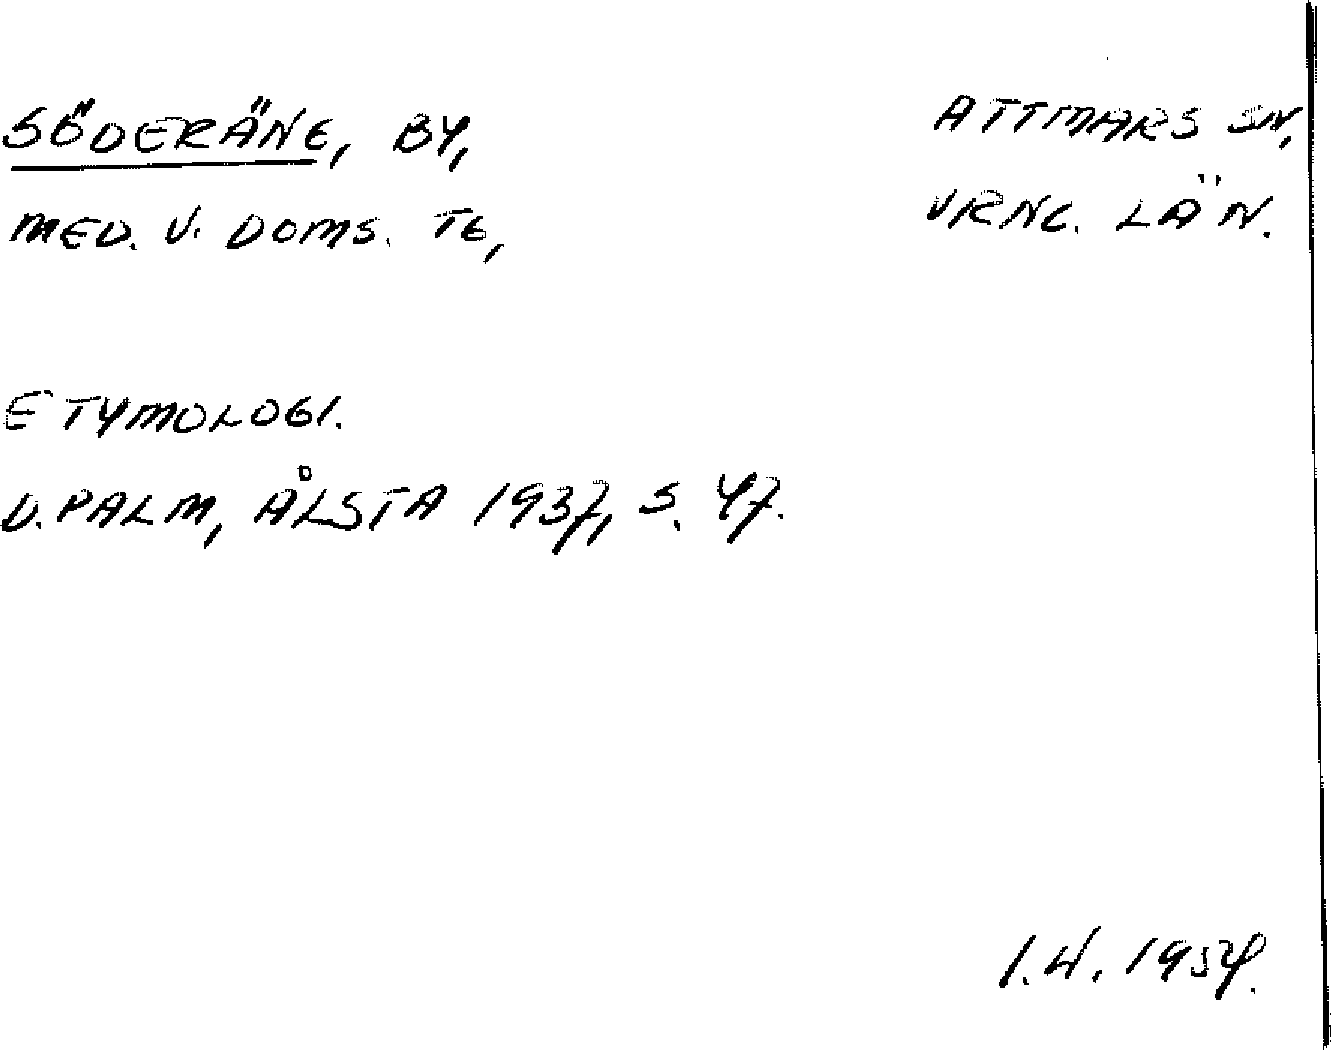 SÖDERÄNE, BY, ATTMARS SN,
MED. V. DOMS. TG, VRNL. LÄN.
ETYMOLOGI.
D. PALM, ÅLSTA 1937, S. 47.
I.W. 1954.